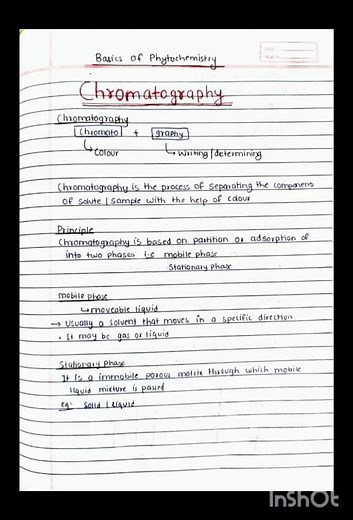 Basics of Phytochemistry
Chromatography
Chromatography
Chromato + graphy
colour writing/determining
Chromatography is the process of separating the components
of solute / sample with the help of colour
Principle
Chromatography is based on partition or adsorption of
into two phases i.e mobile phase
Stationary phase
mobile phase
moveable liquid
→ Usually a solvent that moves in a specific direction.
. It may be gas or liquid
Stationary Phase
It is a immobile porous matrix through which mobile
liquid mixture is passed
eg: solid / liquid
InShOt